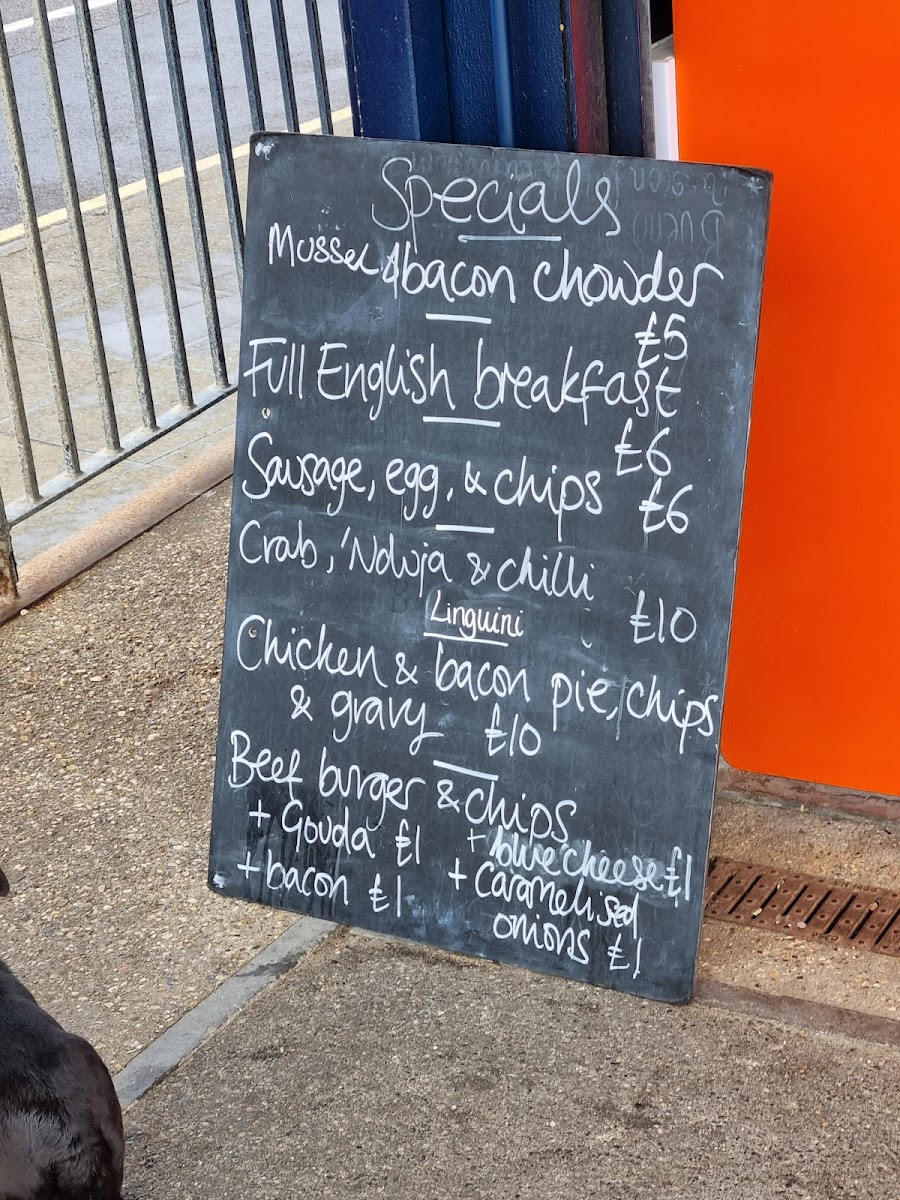 Specials
Mussel & bacon chowder
£5
Full English breakfast
£6
Sausage, egg, & chips £6
Crab, 'Nduja & chilli
Linguini £10
Chicken & bacon pie, chips
& gravy £10
Beef burger & chips
+ Gouda £1 + blue cheese £1
+ bacon £1 + caramelised
onions £1